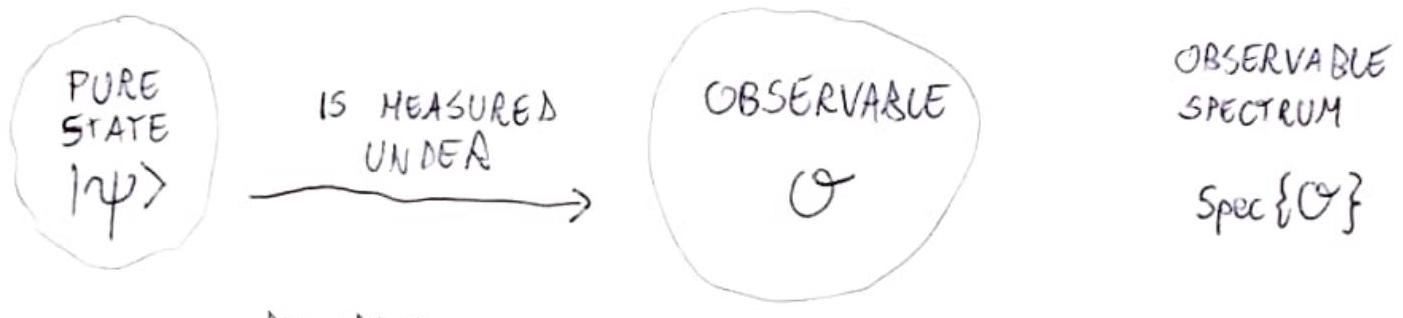 PURE
STATE
|ψ>
IS MEASURED
UNDER
OBSERVABLE
O
OBSERVABLE
SPECTRUM
Spec{O}